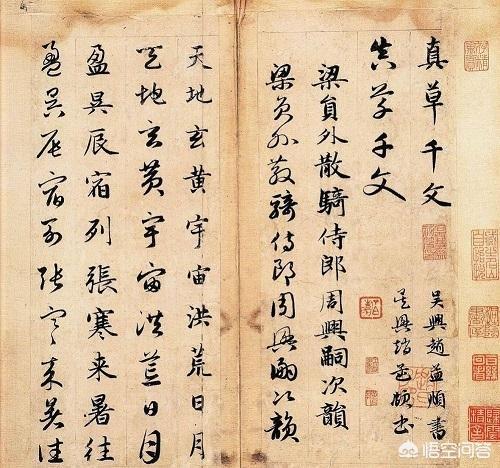 真草千文
真草千文
吳興趙孟頫書
吳興趙孟頫書
梁員外散騎侍郎周興嗣次韻
梁員外散騎侍郎周興嗣次韻
天地玄黃宇宙洪荒日月
天地玄黃宇宙洪荒日月
盈昃辰宿列張寒来暑往
盈昃辰宿列張寒来暑往
悟空问答